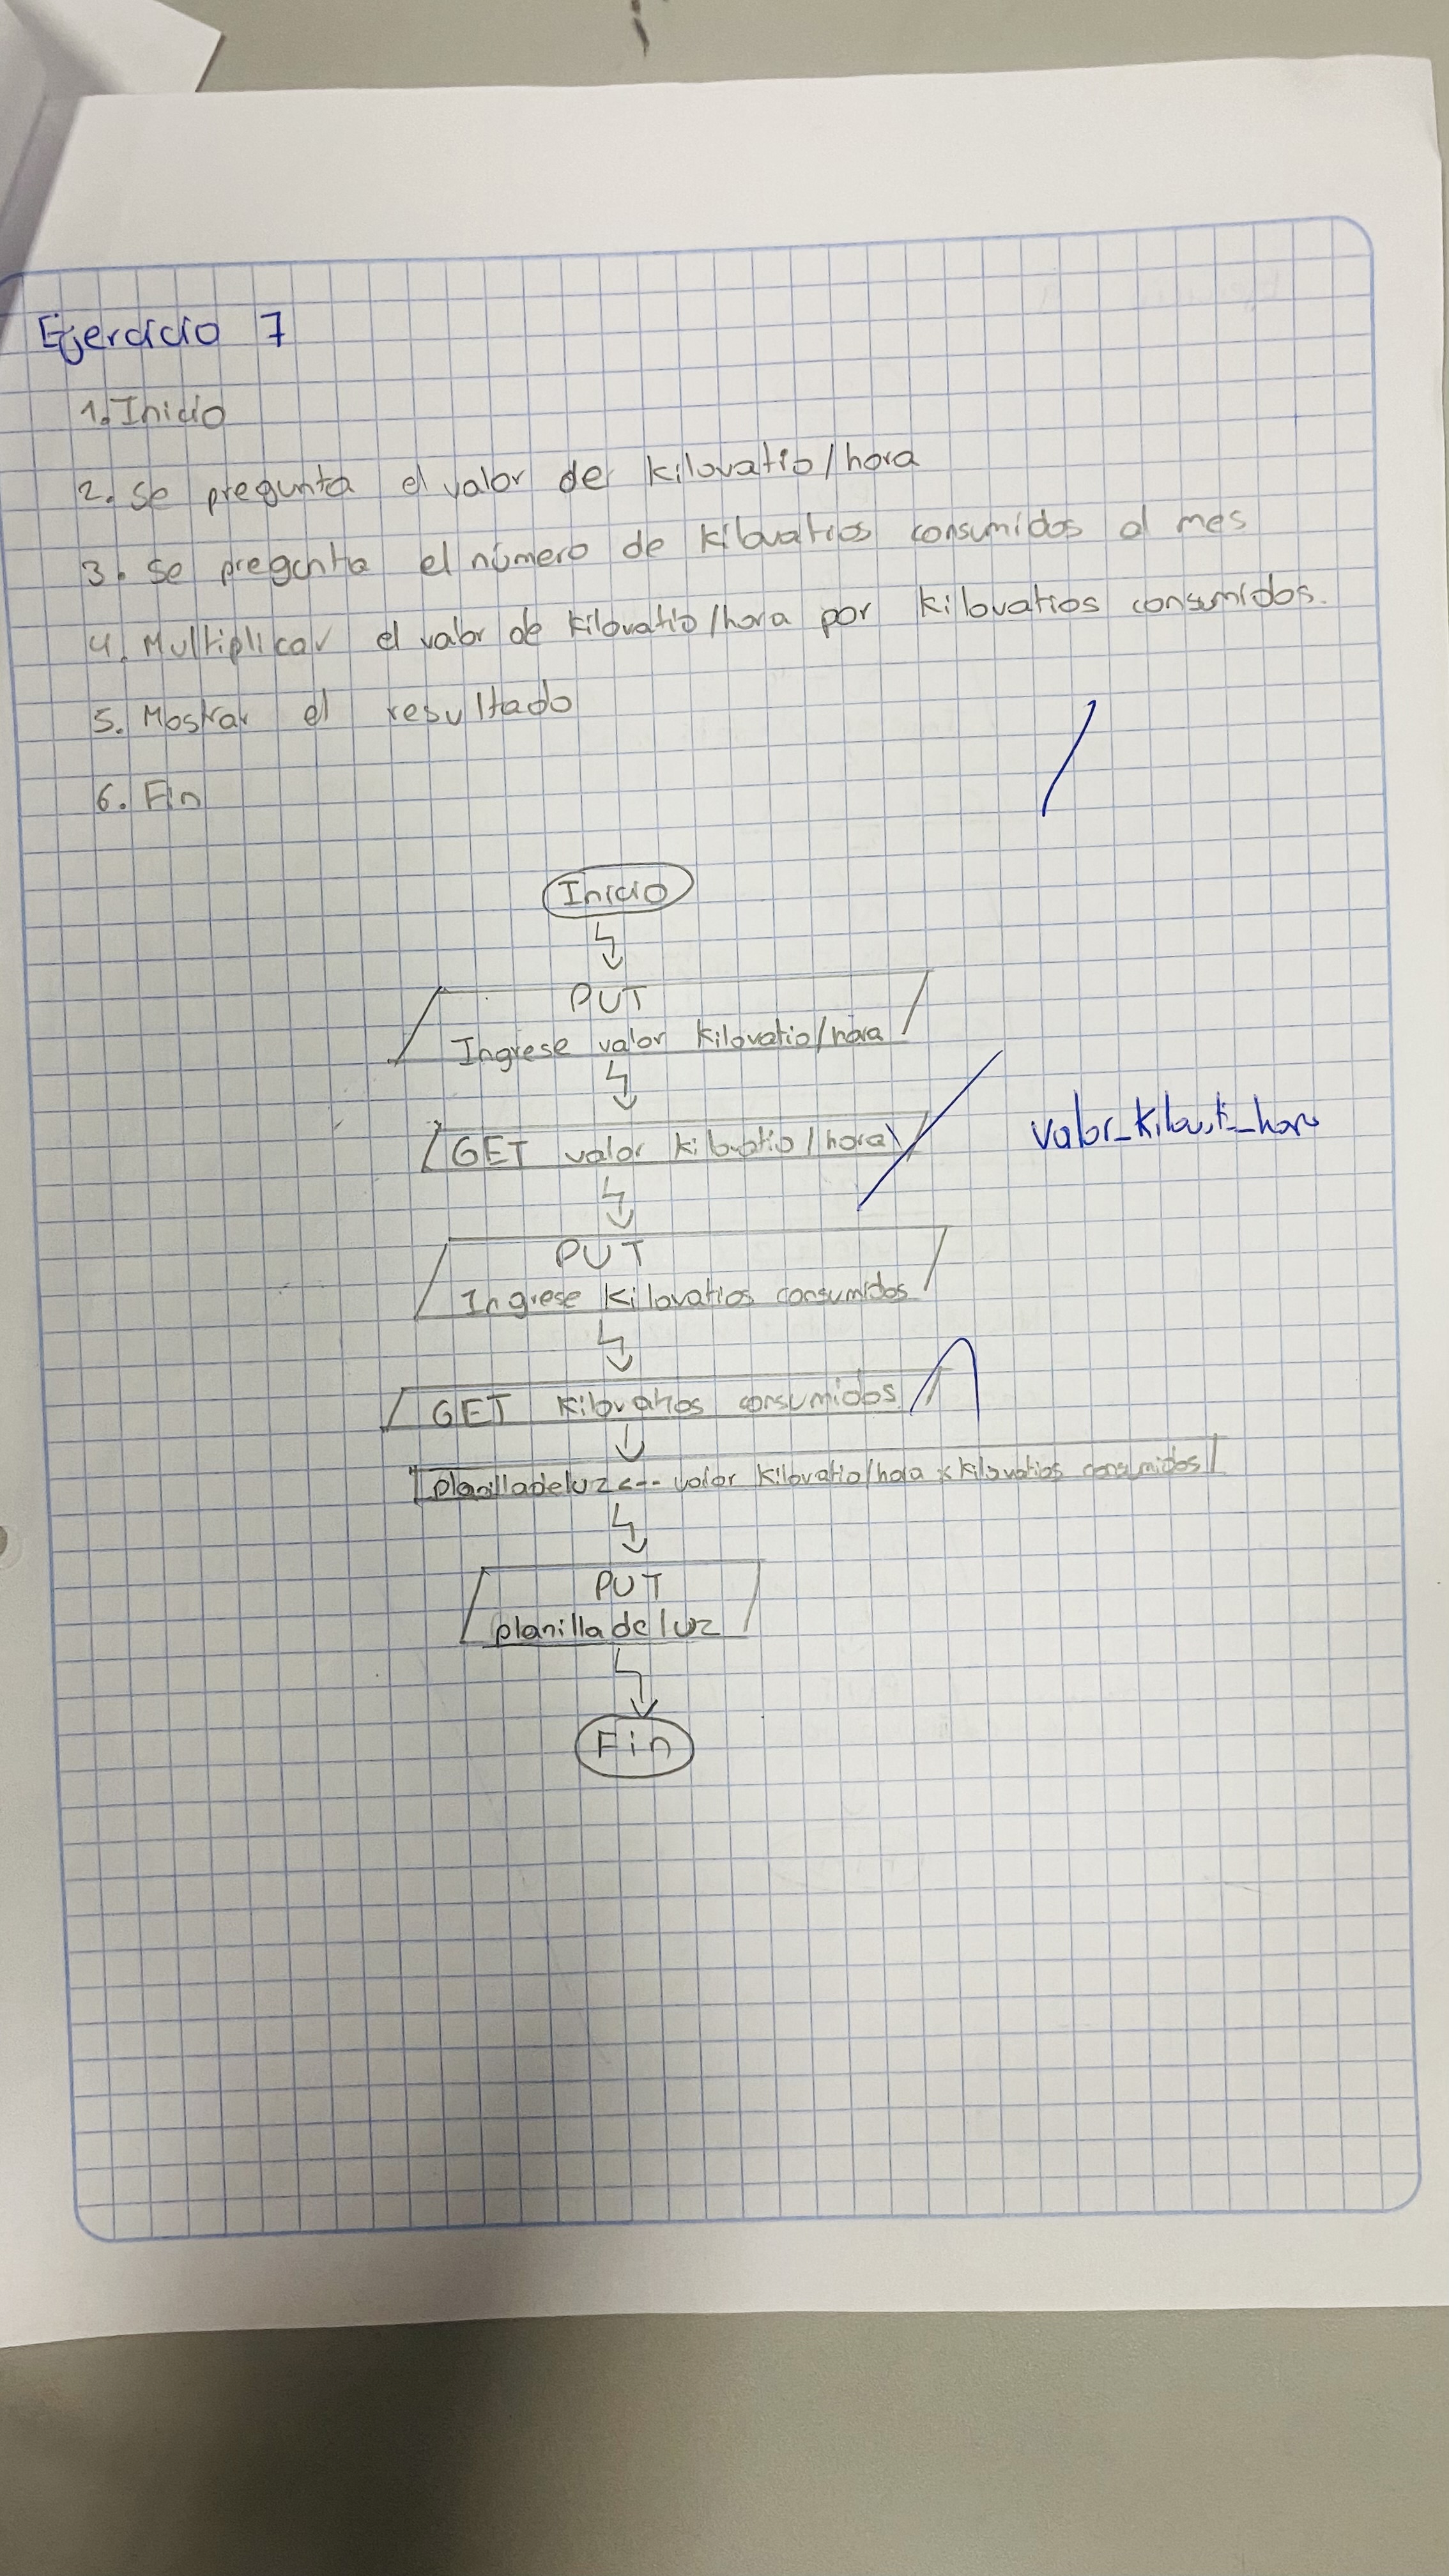 Ejercicio 7
1. Inicio
2. se pregunta el valor de kilovatio/hora
3. se pregunta el número de kilovatios consumidos al mes
4. Multiplicar el valor de kilovatio/hora por kilovatios consumidos.
5. Mostrar el resultado
6. Fin
Inicio
PUT
Ingrese valor kilovatio/hora
GET valor kilovatio/hora
PUT
Ingrese kilovatios consumidos
GET kilovatios consumidos
planilladeluz <-- valor kilovatio/hora x kilovatios consumidos
PUT
planilla de luz
Fin